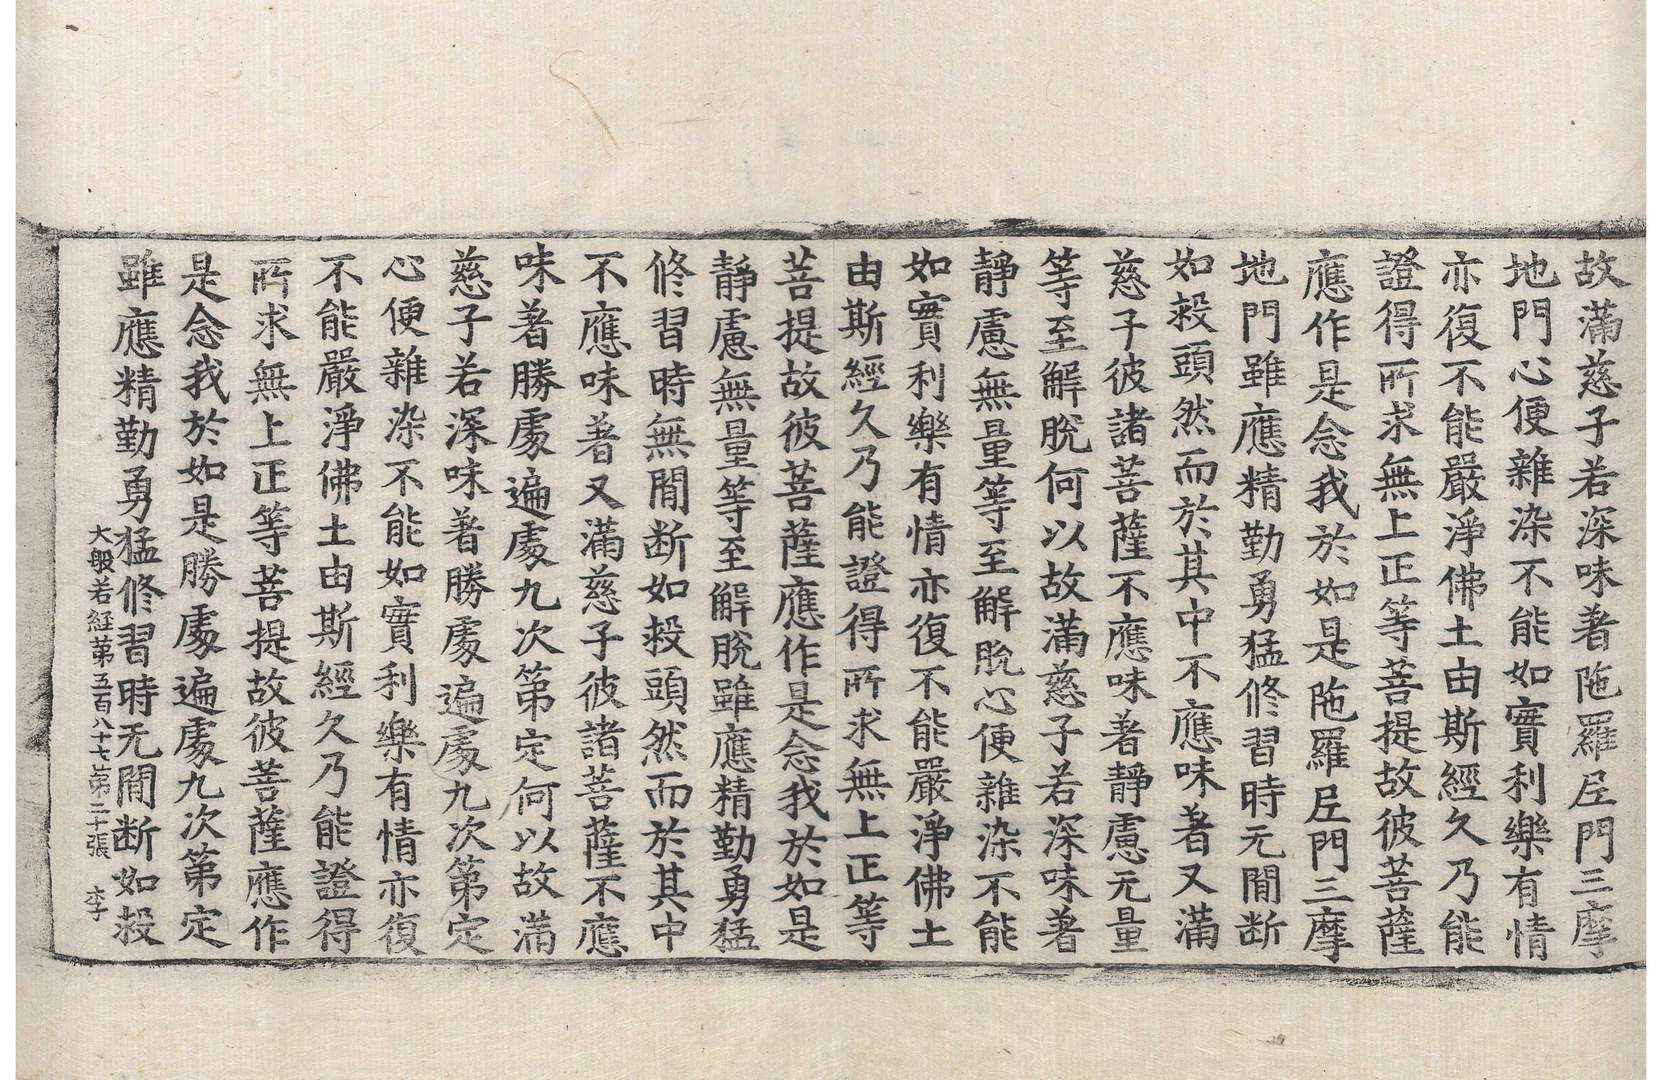 故滿慈子若深味著陁羅尼門三摩
地門心便雜染不能如實利樂有情
亦復不能嚴淨佛土由斯經久乃能
證得所求無上正等菩提故彼菩薩
應作是念我於如是陁羅尼門三摩
地門雖應精勤勇猛修習時无閒断
如㪇頭然而於其中不應味著又滿
慈子彼諸菩薩不應味著靜慮无量
等至解脫何以故滿慈子若深味著
靜慮無量等至解脫心便雜染不能
如實利樂有情亦復不能嚴淨佛土
由斯經久乃能證得所求無上正等
菩提故彼菩薩應作是念我於如是
靜慮無量等至解脫雖應精勤勇猛
修習時無閒断如㪇頭然而於其中
不應味著又滿慈子彼諸菩薩不應
味著勝處遍處九次第定何以故滿
慈子若深味著勝處遍處九次第定
心便雜染不能如實利樂有情亦復
不能嚴淨佛土由斯經久乃能證得
所求無上正等菩提故彼菩薩應作
是念我於如是勝處遍處九次第定
雖應精勤勇猛修習時无閒断如㪇
大般若經第五百八十七第二十張 李